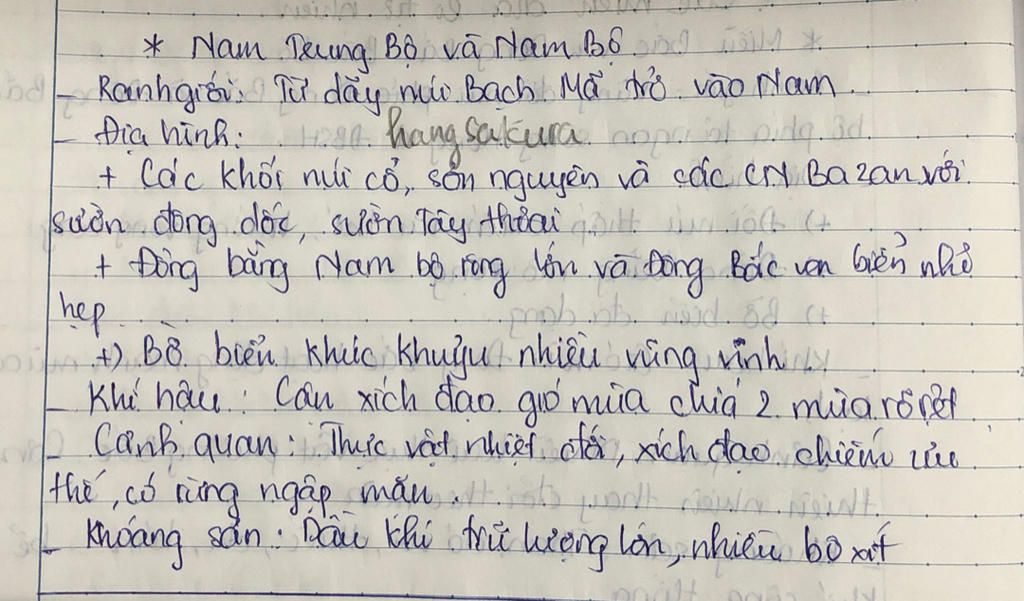 * Nam Trung Bộ và Nam Bộ
- Ranh giới: Từ dãy núi Bạch Mã trở vào Nam
- Địa hình:
hangsakura
+ Các khối núi cổ, sơn nguyên và các CN Bazan với
sườn đông dốc, sườn Tây thoải
+ Đồng bằng Nam bộ rộng lớn và Đông Bắc ven biển nhỏ
hẹp
+) Bờ biển khúc khuỷu nhiều vũng vịnh.
- Khí hậu: Cận xích đạo gió mùa chia 2 mùa rõ rệt
- Cảnh quan: Thực vật nhiệt đới, xích đạo chiếm ưu
thế, có rừng ngập mặn.
- Khoáng sản: Dầu khí trữ lượng lớn, nhiều bô xít